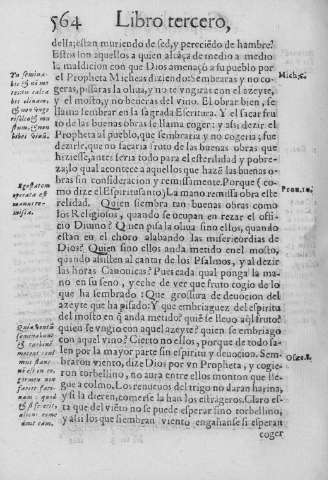 564 Libro tercero,
della; estan muriendo de sed, y pereciēdo de hambre?
Estos son aquellos a quien alcāça de medio a medio
la maldicion con que Dios amenaçò a su pueblo por
el Propheta Micheas diziendo: Sembraras y no co-
geras, pisaras la oliua, y no te vngiras con el azeyte,
y el mosto, y no beueras del vino. El obrar bien, se
llama sembrar en la sagrada Escritura. Y el sacar fru
to de las buenas obras se llama coger: y assi dezir el
Propheta al pueblo, que sembraria y no cogeria; fue
dezirle, que no sacaria fruto de las buenas obras que
hiziesse, antes seria todo para el esterilidad y pobre-
za, lo qual acontece a aquellos que hazē las buenas o-
bras sin consideracion y remissamente. Porque (co-
mo dize el Espiritu santo) La mano remissa obra este
relidad. Quien siembra tan buenas obras como
los Religiosos, quando se ocupan en rezar el offi-
cio Diuino? Quien pisa la oliua sino ellos, quando
estan en el choro alabando las misericordias de
Dios? Quien sino ellos anda metido en el mosto,
quando assisten al cantar de los Psalmos, y al dezir
las horas Canonicas? Pues cada qual ponga la ma-
no en su seno, y eche de ver que fruto cogio de lo
que ha sembrado: Que grossura de deuocion del
azeyte que ha pisado: Y que embriaguez del espiritu
del mosto en q̄ anda metido? què se lleuo aq̄l fruto?
quien se vngio con aquel azeyte? quien se embriago
con aquel vino? Cierto no ellos, porque de todo sa-
len por la mayor parte sin espiritu y deuocion. Sem-
braron viento, dize Dios por vn Propheta, y cogie
ron torbellino, no aura entre ellos monton que lle-
gue a colmo. Los renueuos del trigo no daran harina,
y si la dieren, comerse la han los estrāgeros. Claro es-
ta que del viēto no se puede esperar sino torbellino,
y assi los que siembran viento, engañanse si esperan
coger
Mich. 6.
Prou. 10.
Osee. 8.
Tu semina-
bis & nō me
Egestatem
operata est
manus re-
missa.
Quia ventū
seminabunt